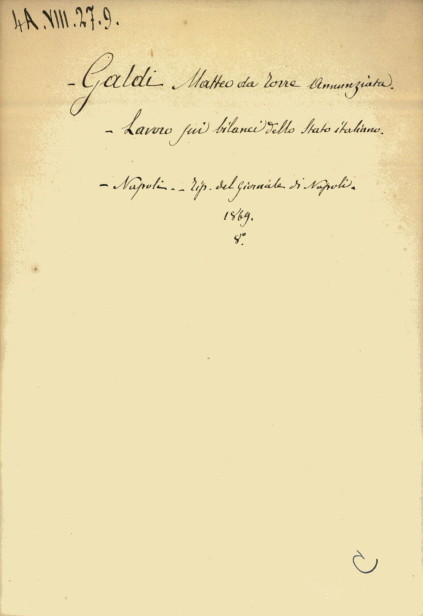 4A.VIII.27.9.
- Galdi Matteo da Torre Annunziata.
- Lavoro sui bilanci dello Stato italiano.
- Napoli - Tip. del Giornale di Napoli.
1869.
8°.